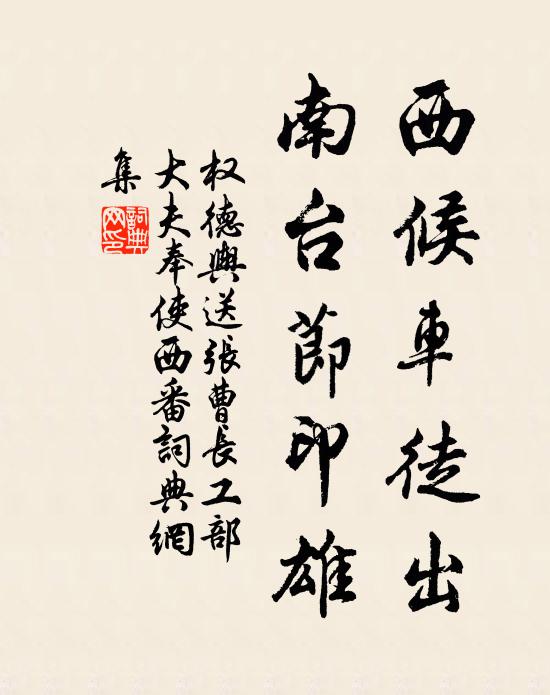 西候車徒出
南台節印雄
权德輿送張曹長工部
大夫奉使西番詞典網
集
詞典
网印